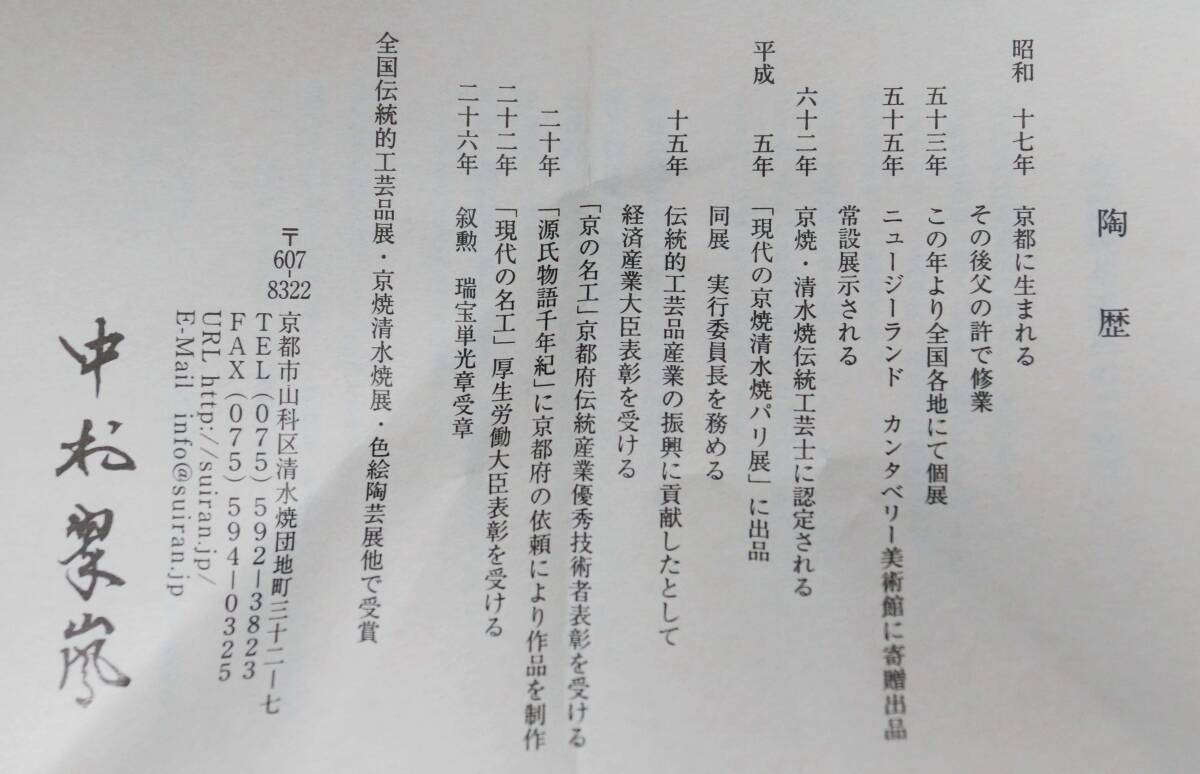 陶歴
昭和 十七年 京都に生まれる
その後父の許で修業
五十三年 この年より全国各地にて個展
五十五年 ニュージーランド カンタベリー美術館に寄贈出品
常設展示される
六十二年 京焼・清水焼伝統工芸士に認定される
平成 五年 「現代の京焼清水焼パリ展」に出品
同展 実行委員長を務める
十五年 伝統的工芸品産業の振興に貢献したとして
経済産業大臣表彰を受ける
「京の名工」京都府伝統産業優秀技術者表彰を受ける
二十年 「源氏物語千年紀」に京都府の依頼により作品を制作
二十二年 「現代の名工」厚生労働大臣表彰を受ける
二十六年 叙勲 瑞宝単光章受章
全国伝統的工芸品展・京焼清水焼展・色絵陶芸展他で受賞
〒607-8322 京都市山科区清水焼団地町三十二―七
TEL(075)592―3823
FAX(075)594―0325
URL http://suiran.jp/
E-Mail info@suiran.jp
中村翠嵐